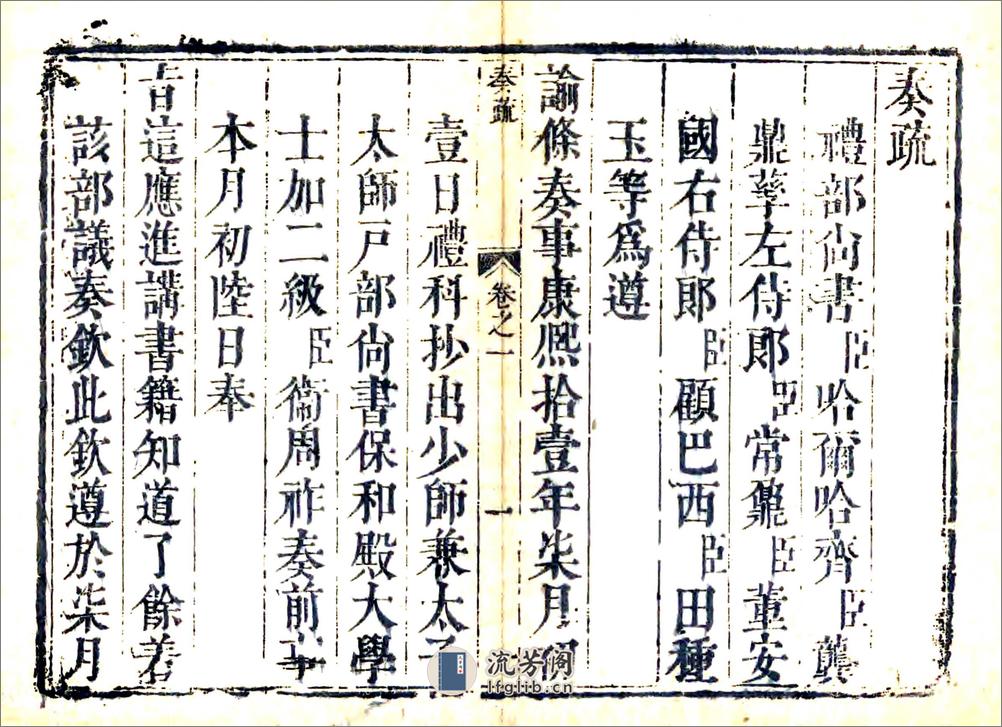 奏疏
禮部尚書臣哈爾哈齊臣龔
鼎孳左侍郎臣常鼐臣董安
國右侍郎臣顧巴西臣田種
玉等爲遵
諭條奏事康熙拾壹年柒月初
奏疏 卷之一 一
壹日禮科抄出少師兼太子
太師戸部尚書保和殿大學
士加二級臣衞周祚奏前事
本月初陸日奉
旨這應進講書籍知道了餘着
該部議奏欽此欽遵於柒月
流芳阁
lfglib.cn